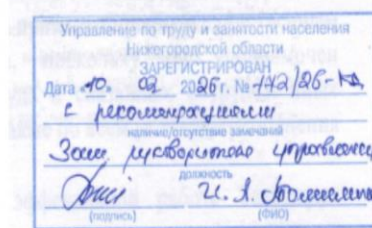 Управление по труду и занятости населения
Нижегородской области
ЗАРЕГИСТРИРОВАН
Дата «10» 02 2026 г. № 172/26-КД
с рекомендациями
наличие/отсутствие замечаний
Зам. руководителя управления
должность
И. А.
(подпись) (ФИО)